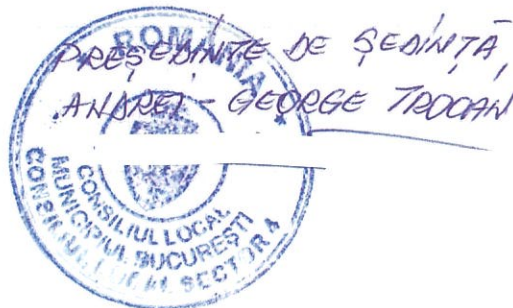 PREȘEDINTE DE ȘEDINȚĂ,
ANDREI - GEORGE TROCAN
ROMÂNIA
CONSILIUL LOCAL
MUNICIPIUL BUCUREȘTI
CONSILIUL LOCAL SECTOR 4